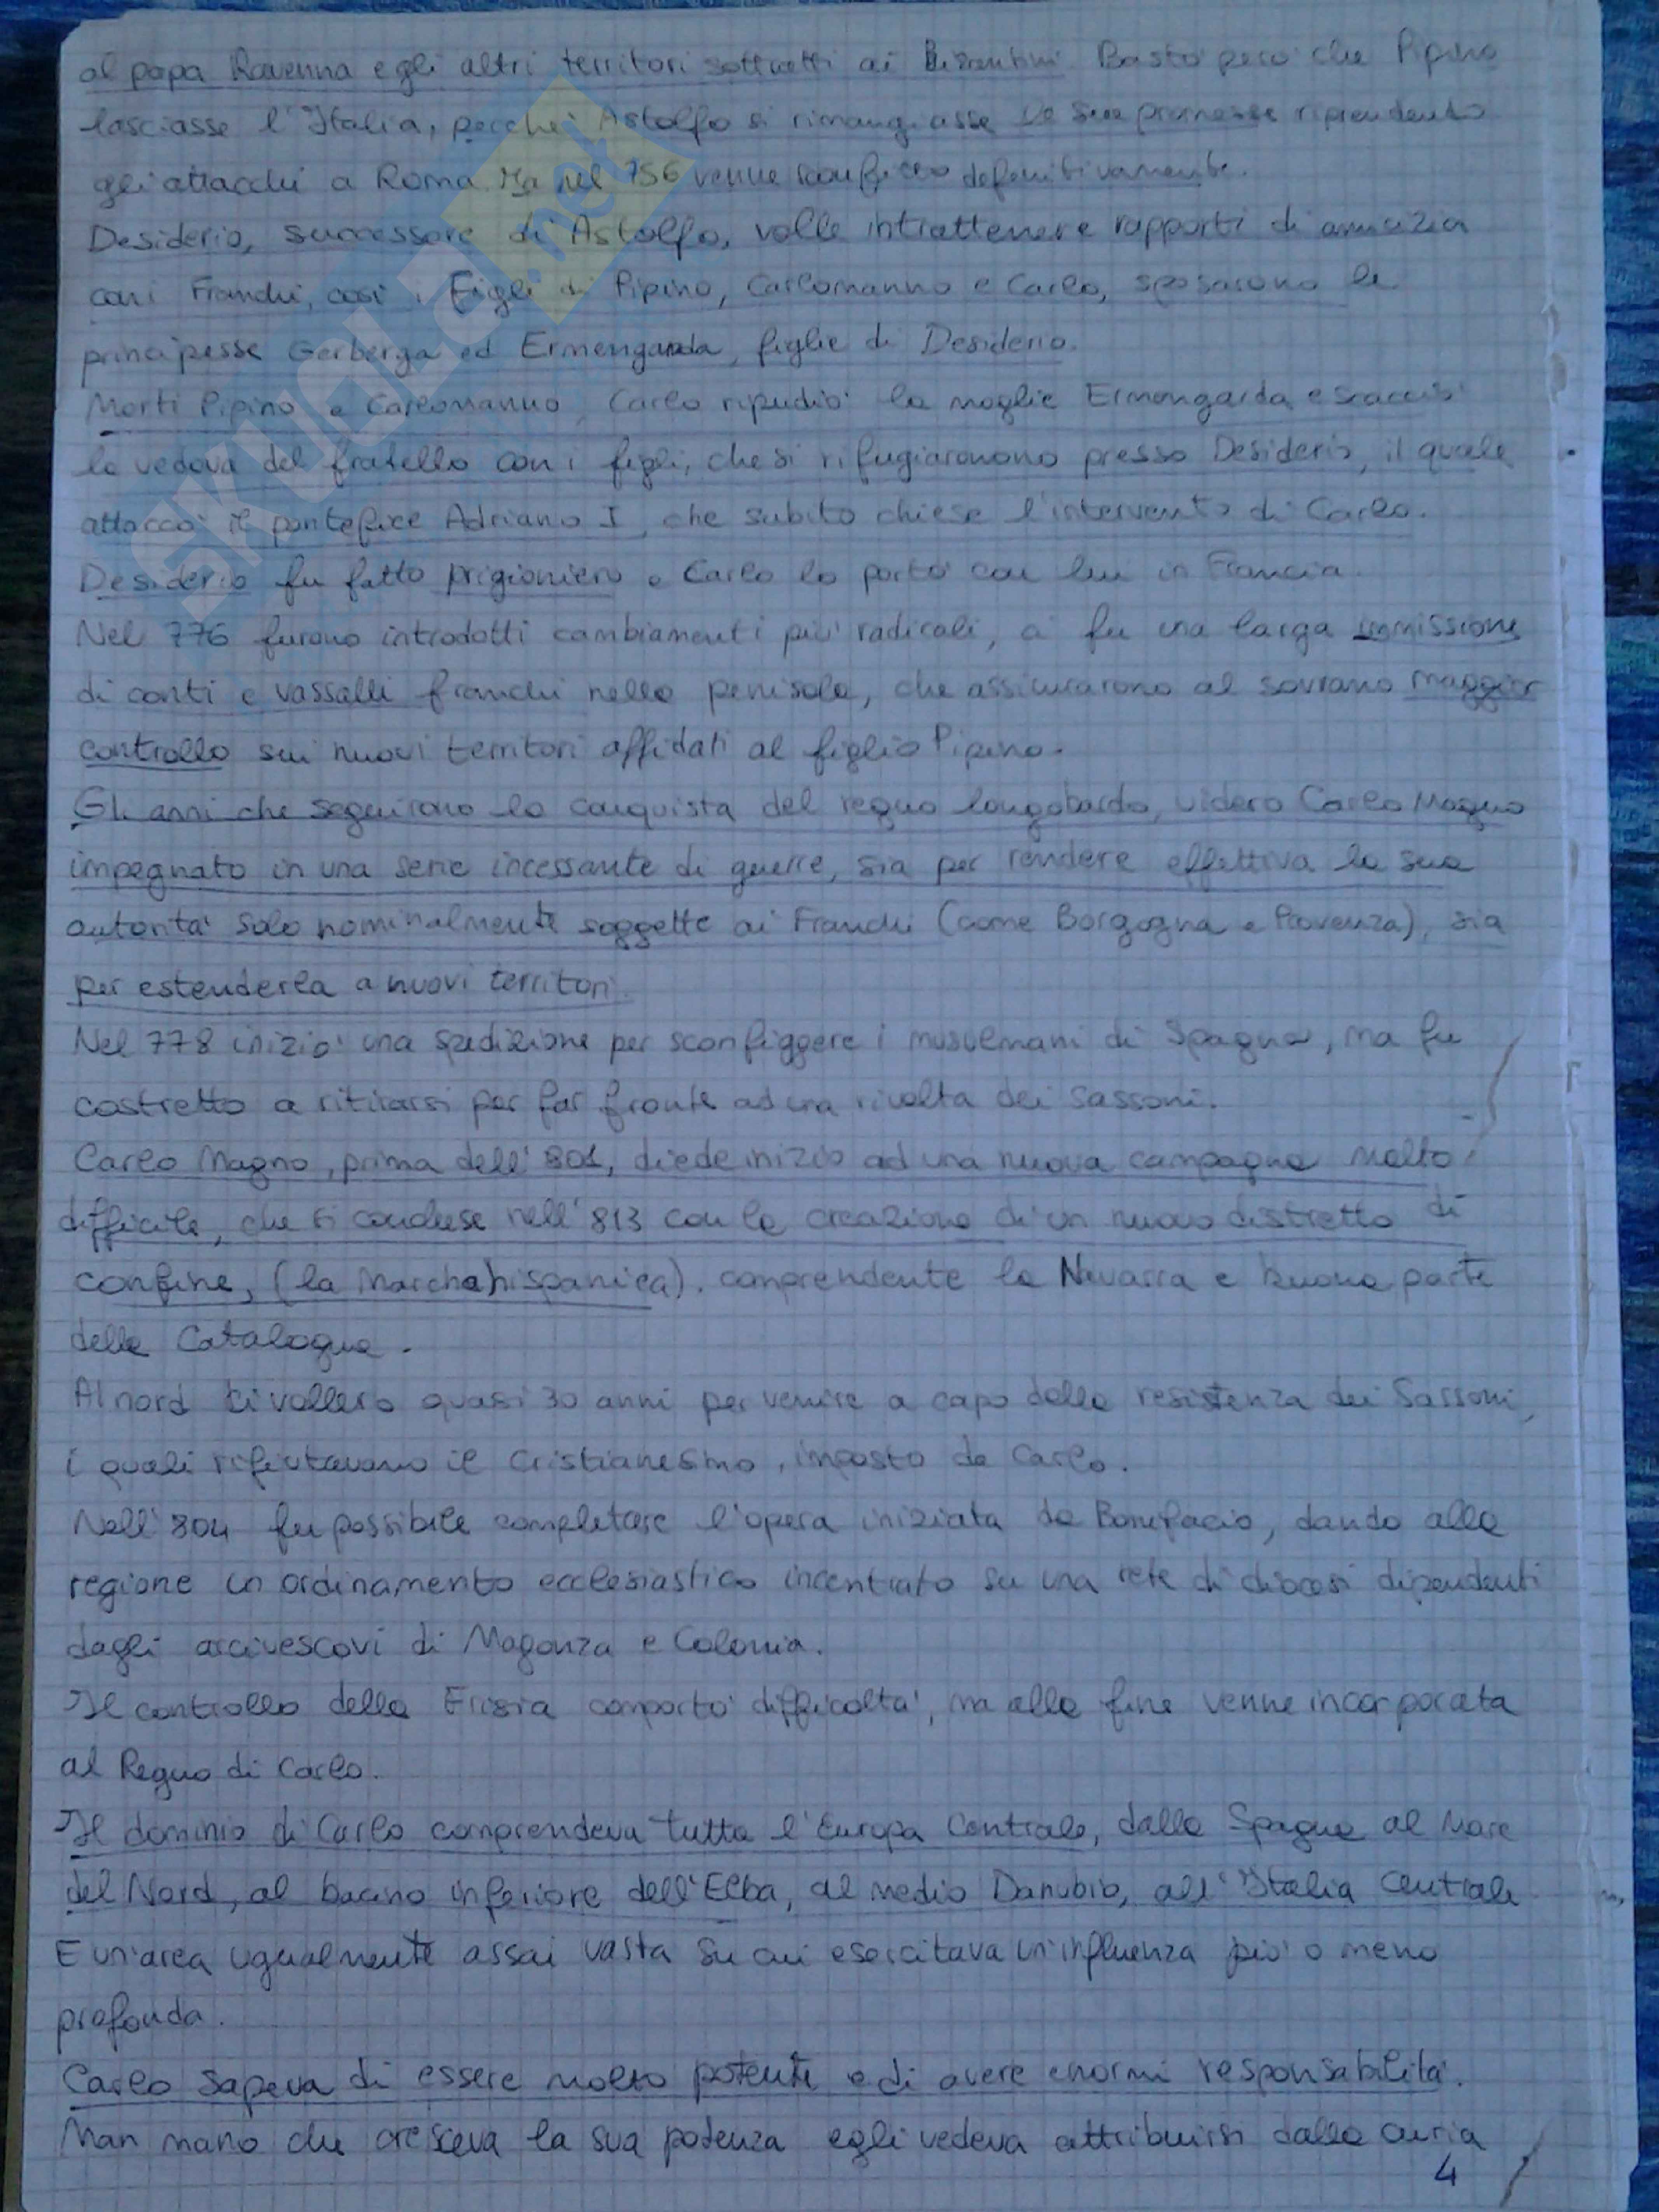 al papa Ravenna e gli altri territori sottratti ai Bizantini. Bastò però che Pipino
lasciasse l'Italia, perché Astolfo si rimangiasse le sue promesse riprendendo
gli attacchi a Roma. Ma nel 756 venne sconfitto definitivamente.
Desiderio, successore di Astolfo, volle intrattenere rapporti di amicizia
con i Franchi, così i figli di Pipino, Carlomanno e Carlo, sposarono le
principesse Gerberga ed Ermengarda, figlie di Desiderio.
Morti Pipino e Carlomanno, Carlo ripudiò la moglie Ermengarda e scacciò
la vedova del fratello con i figli, che si rifugiaronono presso Desiderio, il quale
attaccò il pontefice Adriano I, che subito chiese l'intervento di Carlo.
Desiderio fu fatto prigioniero e Carlo lo portò con lui in Francia.
Nel 776 furono introdotti cambiamenti più radicali, ci fu una larga immissione
di conti e vassalli franchi nella penisola, che assicurarono al sovrano maggior
controllo sui nuovi territori affidati al figlio Pipino.
Gli anni che seguirono la conquista del regno longobardo, videro Carlo Magno
impegnato in una serie incessante di guerre, sia per rendere effettiva la sua
autorità solo nominalmente soggette ai Franchi (come Borgogna e Provenza), sia
per estenderla a nuovi territori.
Nel 778 iniziò una spedizione per sconfiggere i musulmani di Spagna, ma fu
costretto a ritirarsi per far fronte ad una rivolta dei Sassoni.
Carlo Magno, prima dell'801, diede inizio ad una nuova campagna molto
difficile, che si concluse nell'813 con la creazione di un nuovo distretto di
confine, (la Marcha hispanica). comprendente la Navarra e buona parte
della Catalogna.
Al nord ci vollero quasi 30 anni per venire a capo della resistenza dei Sassoni,
i quali rifiutavano il cristianesimo, imposto da Carlo.
Nell'804 fu possibile completare l'opera iniziata da Bonifacio, dando alla
regione un ordinamento ecclesiastico incentrato su una rete di diocesi dipendenti
dagli arcivescovi di Magonza e Colonia.
Il controllo della Frisia comportò difficoltà, ma alla fine venne incorporata
al Regno di Carlo.
Il dominio di Carlo comprendeva tutta l'Europa Centrale, dalla Spagna al Mare
del Nord, al bacino inferiore dell'Elba, al medio Danubio, all'Italia Centrale
E un'area ugualmente assai vasta su cui esercitava un'influenza più o meno
profonda.
Carlo sapeva di essere molto potente e di avere enormi responsabilità.
Man mano che cresceva la sua potenza egli vedeva attribuirsi dalla curia
4
SKUOLA.net